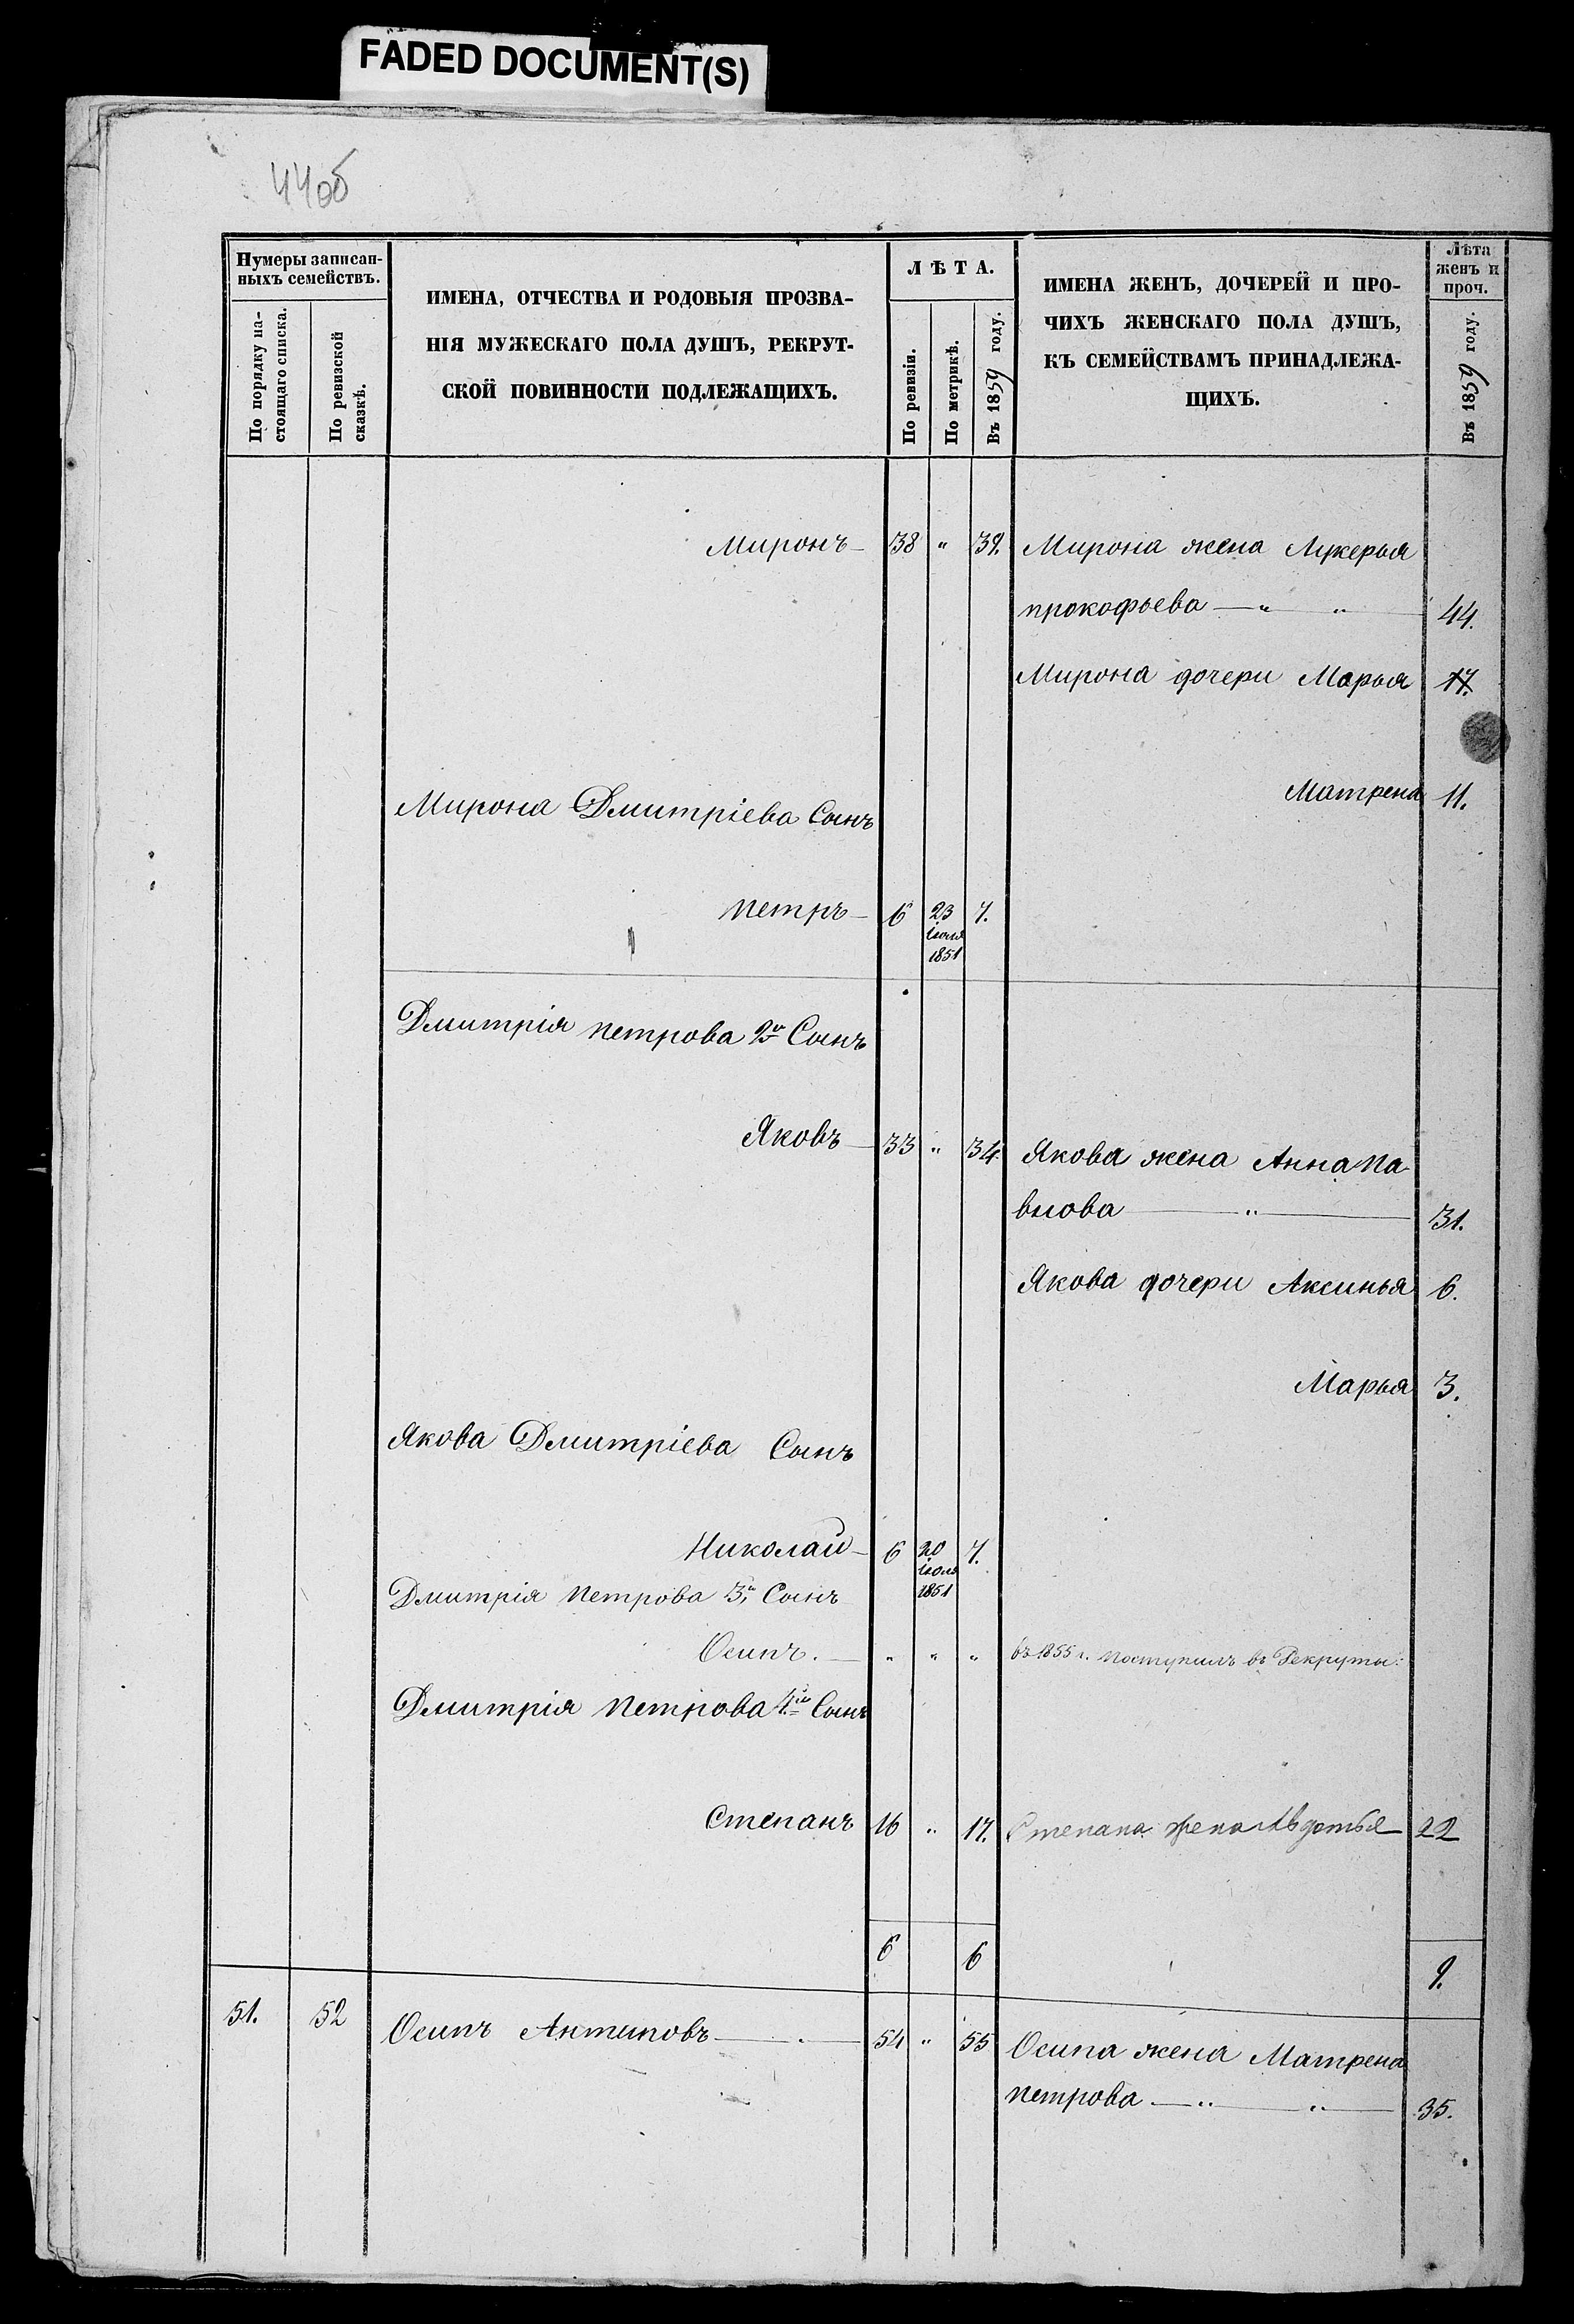 FADED DOCUMENT(S)
44об
Нумеры записан-
ныхъ семействъ.
По порядку на-
стоящаго списка.
По ревизской
сказкѣ.
ИМЕНА, ОТЧЕСТВА И РОДОВЫЯ ПРОЗВА-
НІЯ МУЖЕСКАГО ПОЛА ДУШЪ, РЕКРУТ-
СКОЙ ПОВИННОСТИ ПОДЛЕЖАЩИХЪ.
ЛѢТА.
По ревизіи.
По метрикѣ.
Въ 1859 году.
ИМЕНА ЖЕНЪ, ДОЧЕРЕЙ И ПРО-
ЧИХЪ ЖЕНСКАГО ПОЛА ДУШЪ,
КЪ СЕМЕЙСТВАМЪ ПРИНАДЛЕЖА-
ЩИХЪ.
Лѣта
женъ и
проч.
Въ 1859 году.
Миронъ — 38 " 39. Мирона жена Лукерья
прокофьева — " " — 44.
Мирона дочери Марья 17.
Матрена 11.
Мирона Дмитріева Сынъ
петръ — 6 23 7.
1851
Дмитрія петрова 2й Сынъ
Яковъ — 33 " 34. Якова жена Анна Па-
влова — " — 31.
Якова дочери Аксинья 6.
Марья 3.
Якова Дмитріева Сынъ
Николай — 6 20 7.
1851
Дмитрія петрова 3й Сынъ
Осипъ. — " " " въ 1855 г. поступилъ въ Рекруты.
Дмитрія петрова 4й Сынъ
Степанъ 16 " 17. Степана жена Авдотья 22
6 6
9.
51. 52 Осипъ Антиповъ — 54 " 55 Осипа жена Матрена
петрова — " " — 35.